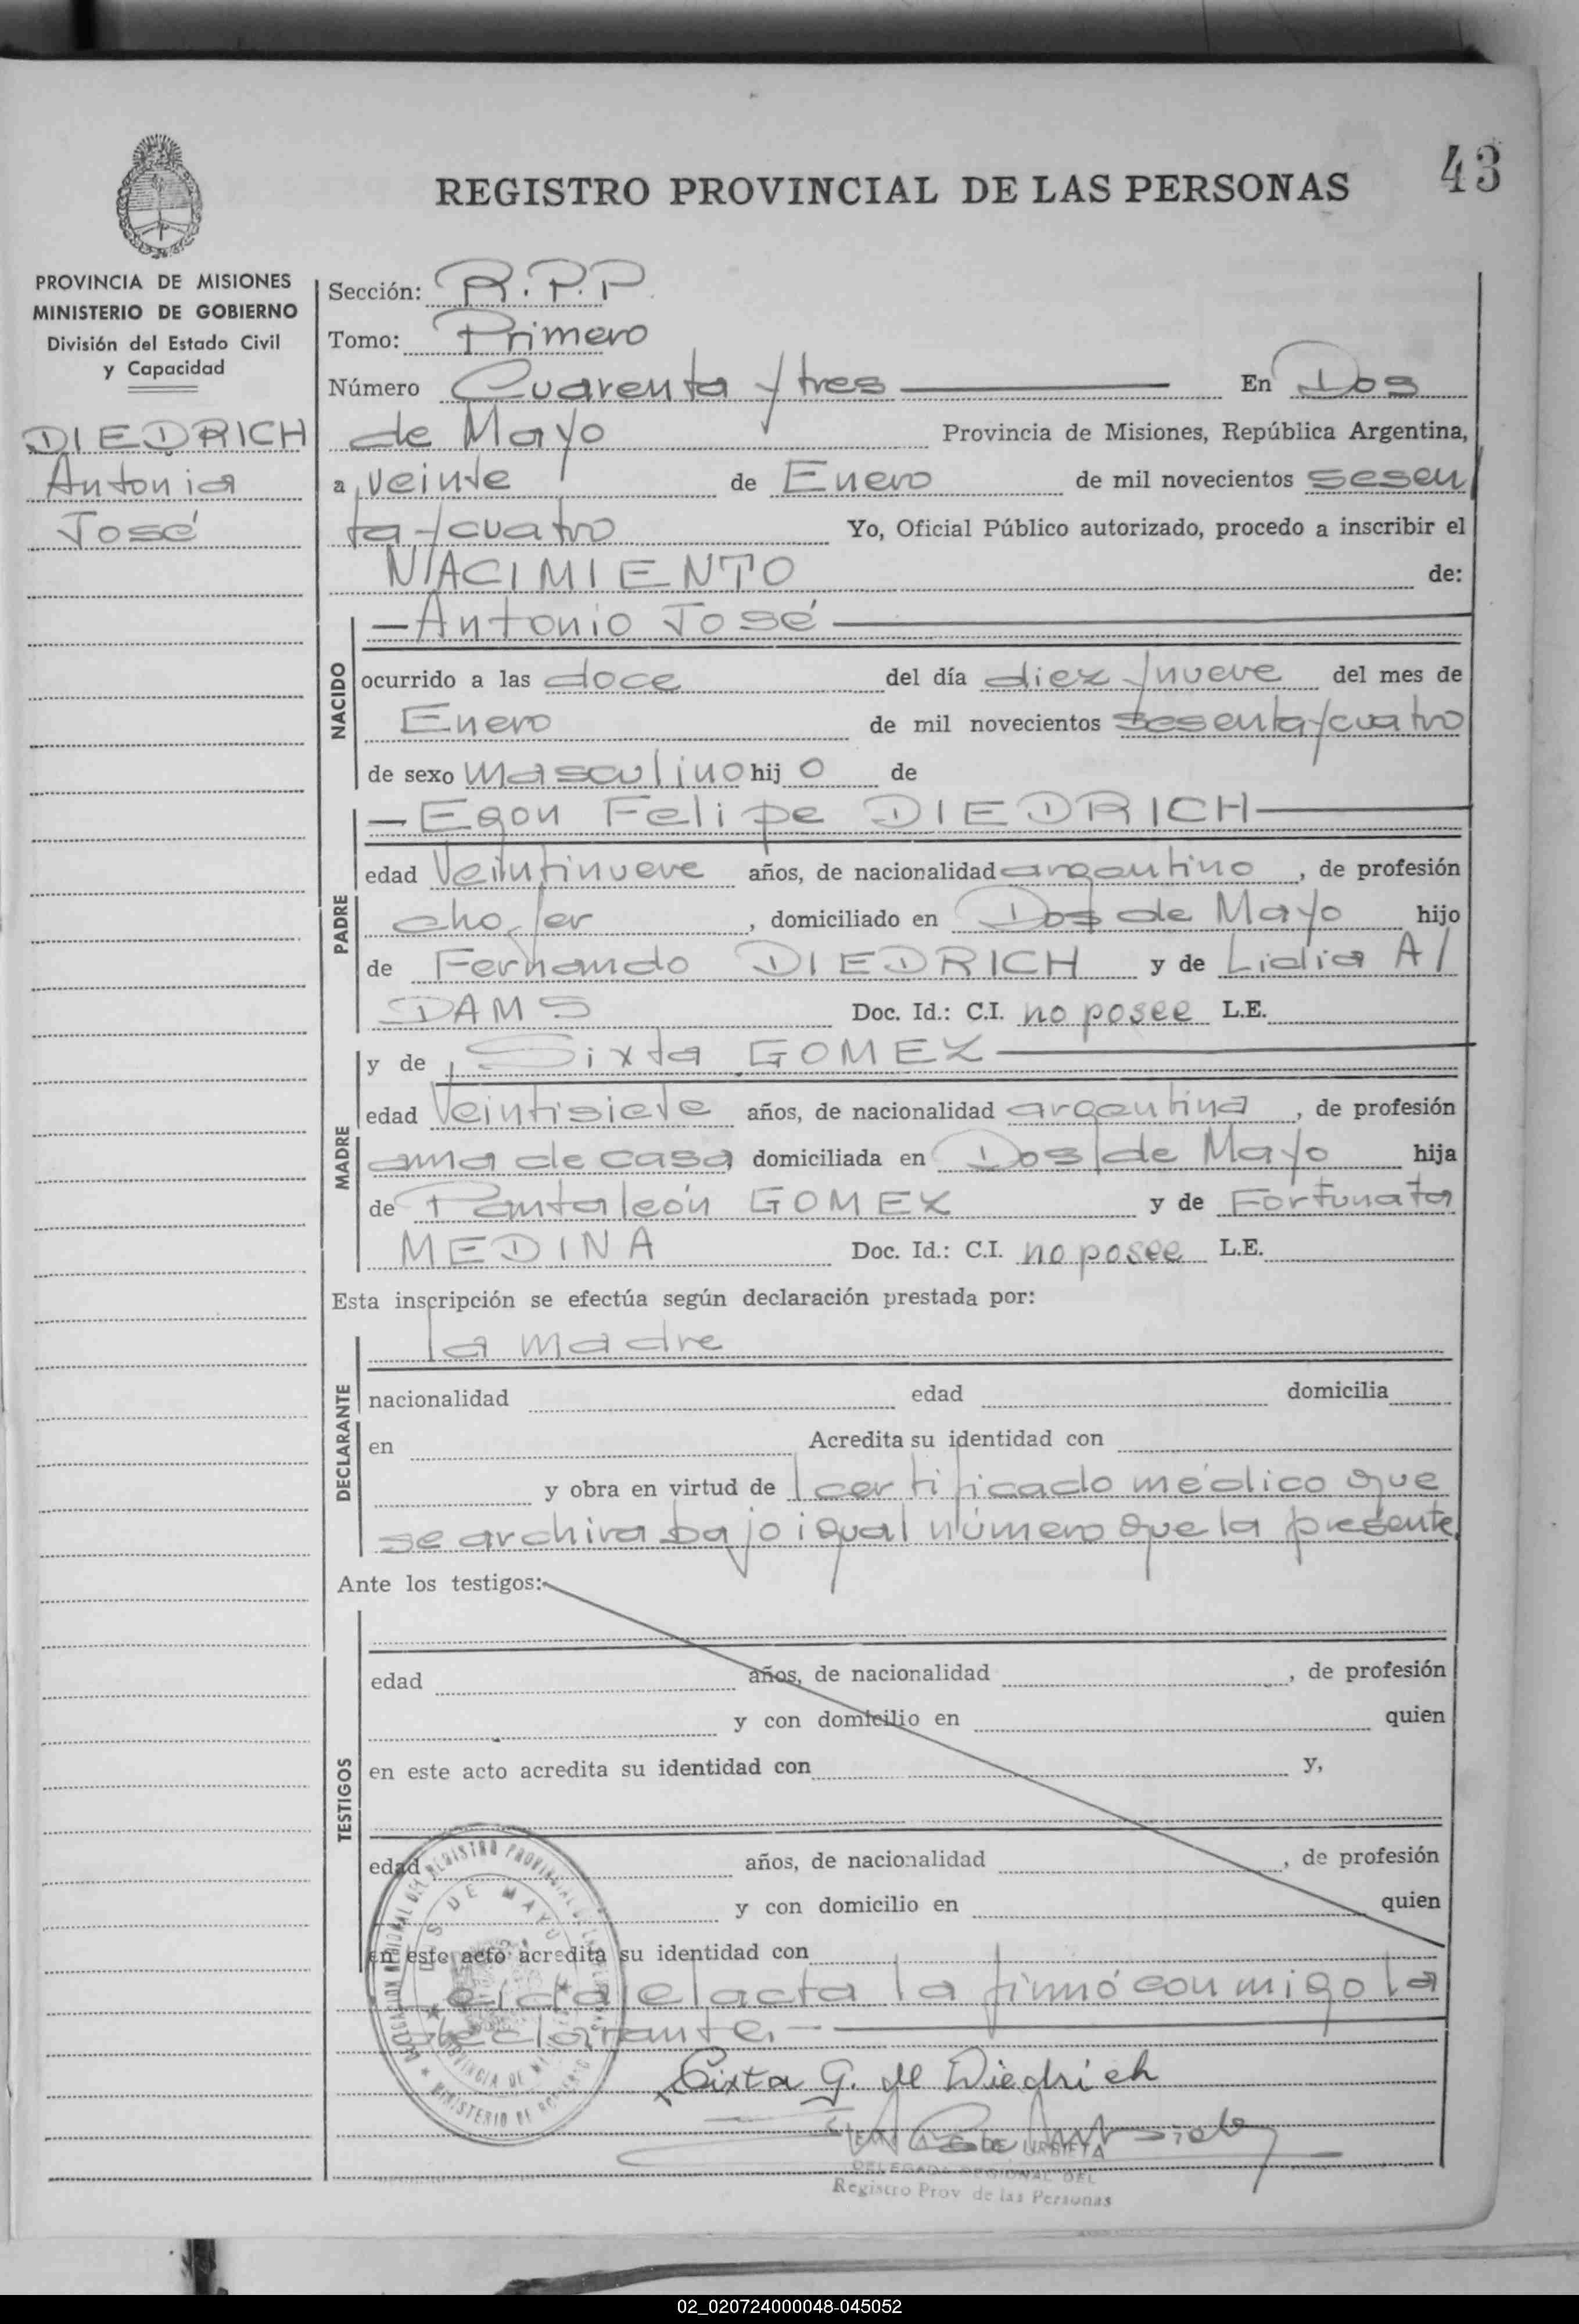 43
REGISTRO PROVINCIAL DE LAS PERSONAS
PROVINCIA DE MISIONES
MINISTERIO DE GOBIERNO
División del Estado Civil
y Capacidad
DIEDRICH
Antonio
José
Sección: R.P.P.
Tomo: Primero
Número Cuarenta y tres En Dos
de Mayo Provincia de Misiones, República Argentina,
a veinte de Enero de mil novecientos sesen
ta y cuatro Yo, Oficial Público autorizado, procedo a inscribir el
NACIMIENTO de:
NACIDO
— Antonio José —
ocurrido a las doce del día diez y nueve del mes de
Enero de mil novecientos sesenta y cuatro
de sexo masculino hij o de
PADRE
— Egon Felipe DIEDRICH —
edad Veintinueve años, de nacionalidad argentino, de profesión
chofer, domiciliado en Dos de Mayo hijo
de Fernando DIEDRICH y de Lidia A/
DAMS Doc. Id.: C.I. no posee L.E.
MADRE
y de Sixta GOMEZ —
edad Veintisiete años, de nacionalidad argentina, de profesión
ama de casa, domiciliada en Dos de Mayo hija
de Pantaleón GOMEZ y de Fortunata
MEDINA Doc. Id.: C.I. no posee L.E.
Esta inscripción se efectúa según declaración prestada por:
DECLARANTE
la madre
nacionalidad edad domicilia
en Acredita su identidad con
y obra en virtud de certificado médico que
se archiva bajo igual número que la presente.
Ante los testigos:
TESTIGOS
edad años, de nacionalidad , de profesión
y con domicilio en quien
en este acto acredita su identidad con y,
edad años, de nacionalidad , de profesión
y con domicilio en quien
en este acto acredita su identidad con
Leida el acta la firmó conmigo la
declarante. —
Sixta G. de Diedrich
DE URBIETA
DELEGADA REGIONAL DEL
Registro Prov de las Personas
DELEGACION REGIONAL DEL REGISTRO PROVINCIAL DE LAS PERSONAS
DOS DE MAYO
PROVINCIA DE MISIONES
MINISTERIO DE GOBIERNO
02_020724000048-045052